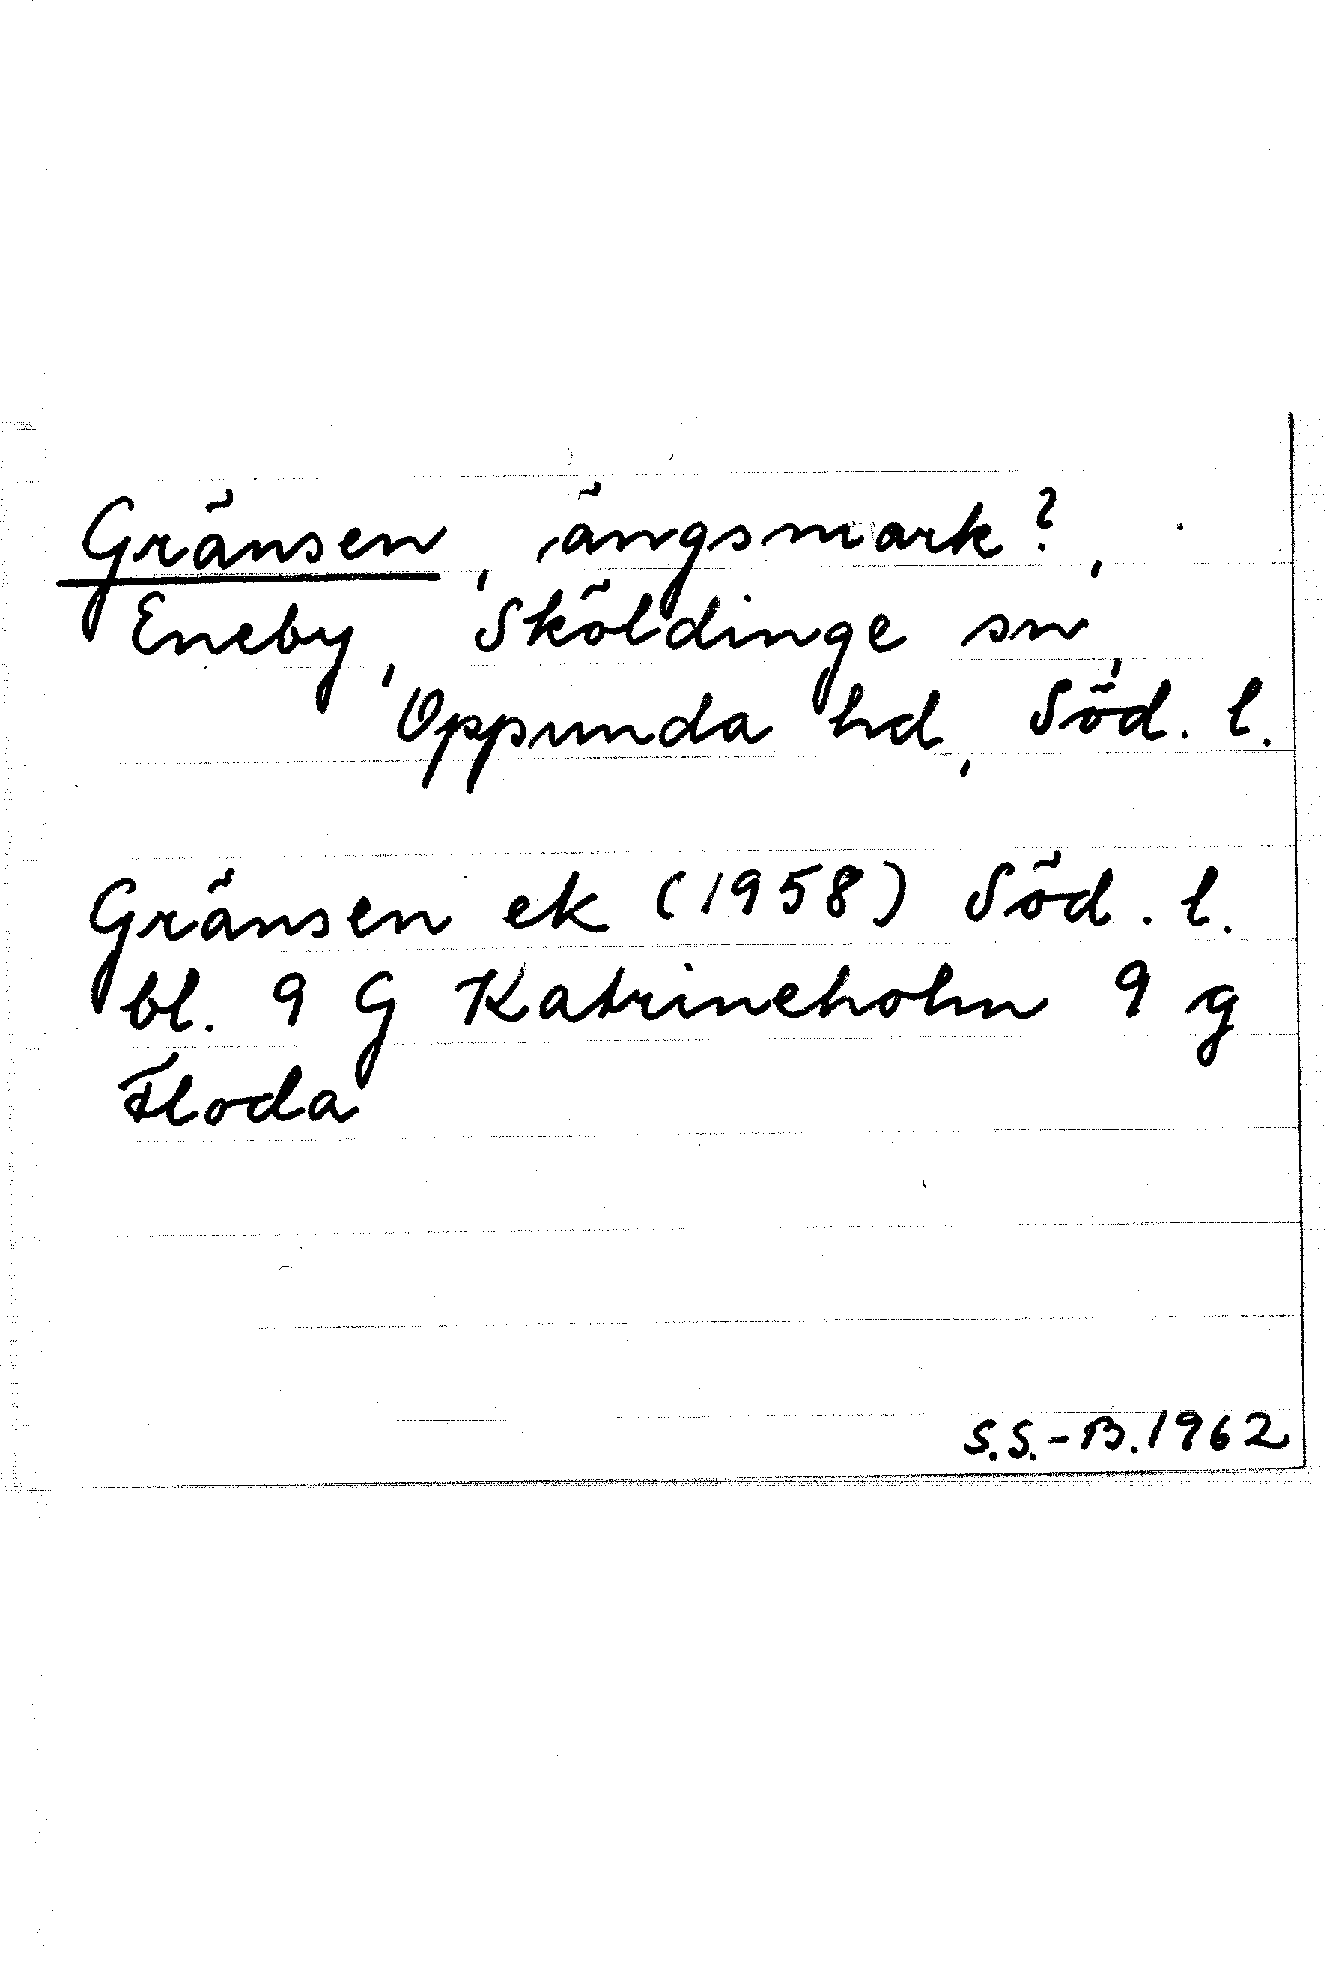 Gränsen, ängsmark?,
Eneby, Sköldinge sn,
Oppunda hd, Söd. l.
Gränsen ek (1958) Söd. l.
bl. 9 G Katrineholm 9 g
Floda
S.S.-B.1962